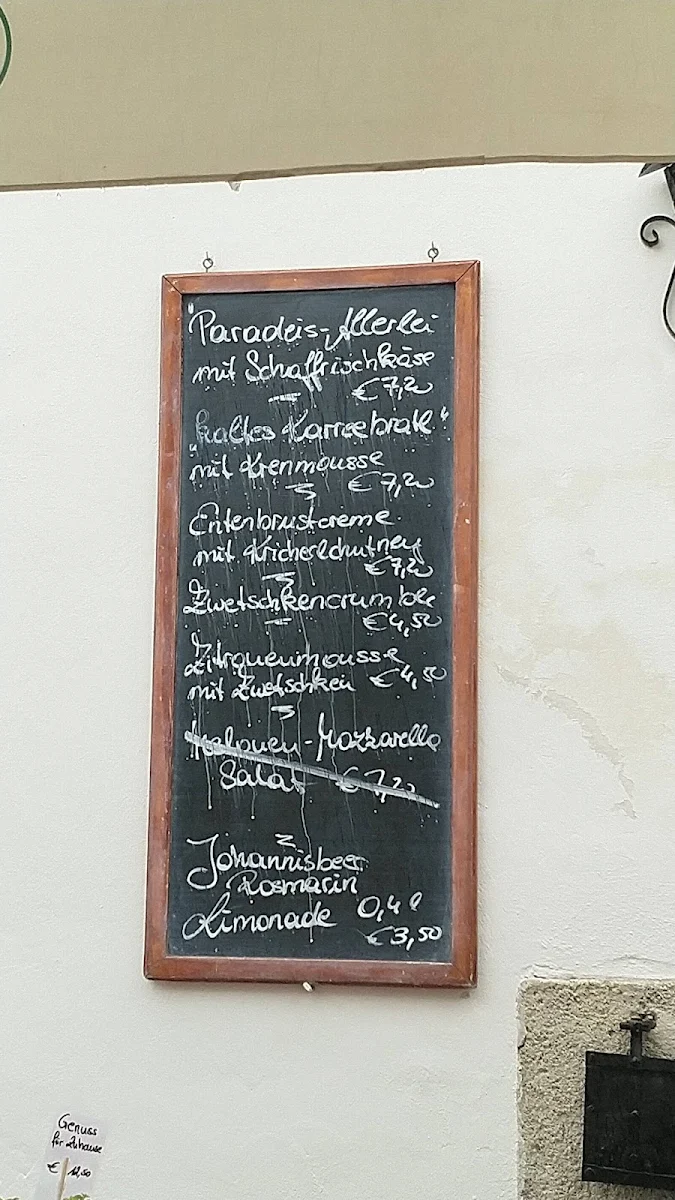 Paradeis-Allerlei
mit Schaffrischkäse
€ 7,20
"kaltes Karreebratl"
mit Krenmousse
€ 7,20
Entenbrustcreme
mit Kricherlchutney
€ 7,20
Zwetschkencrumble
€ 4,50
Zitronenmousse
mit Zwetschken € 4,50
Melonen-Mozzarella
Salat € 7,20
Johannisbeer
Rosmarin
Limonade 0,4 l
€ 3,50
Genuss
für Zuhause
€ 12,50